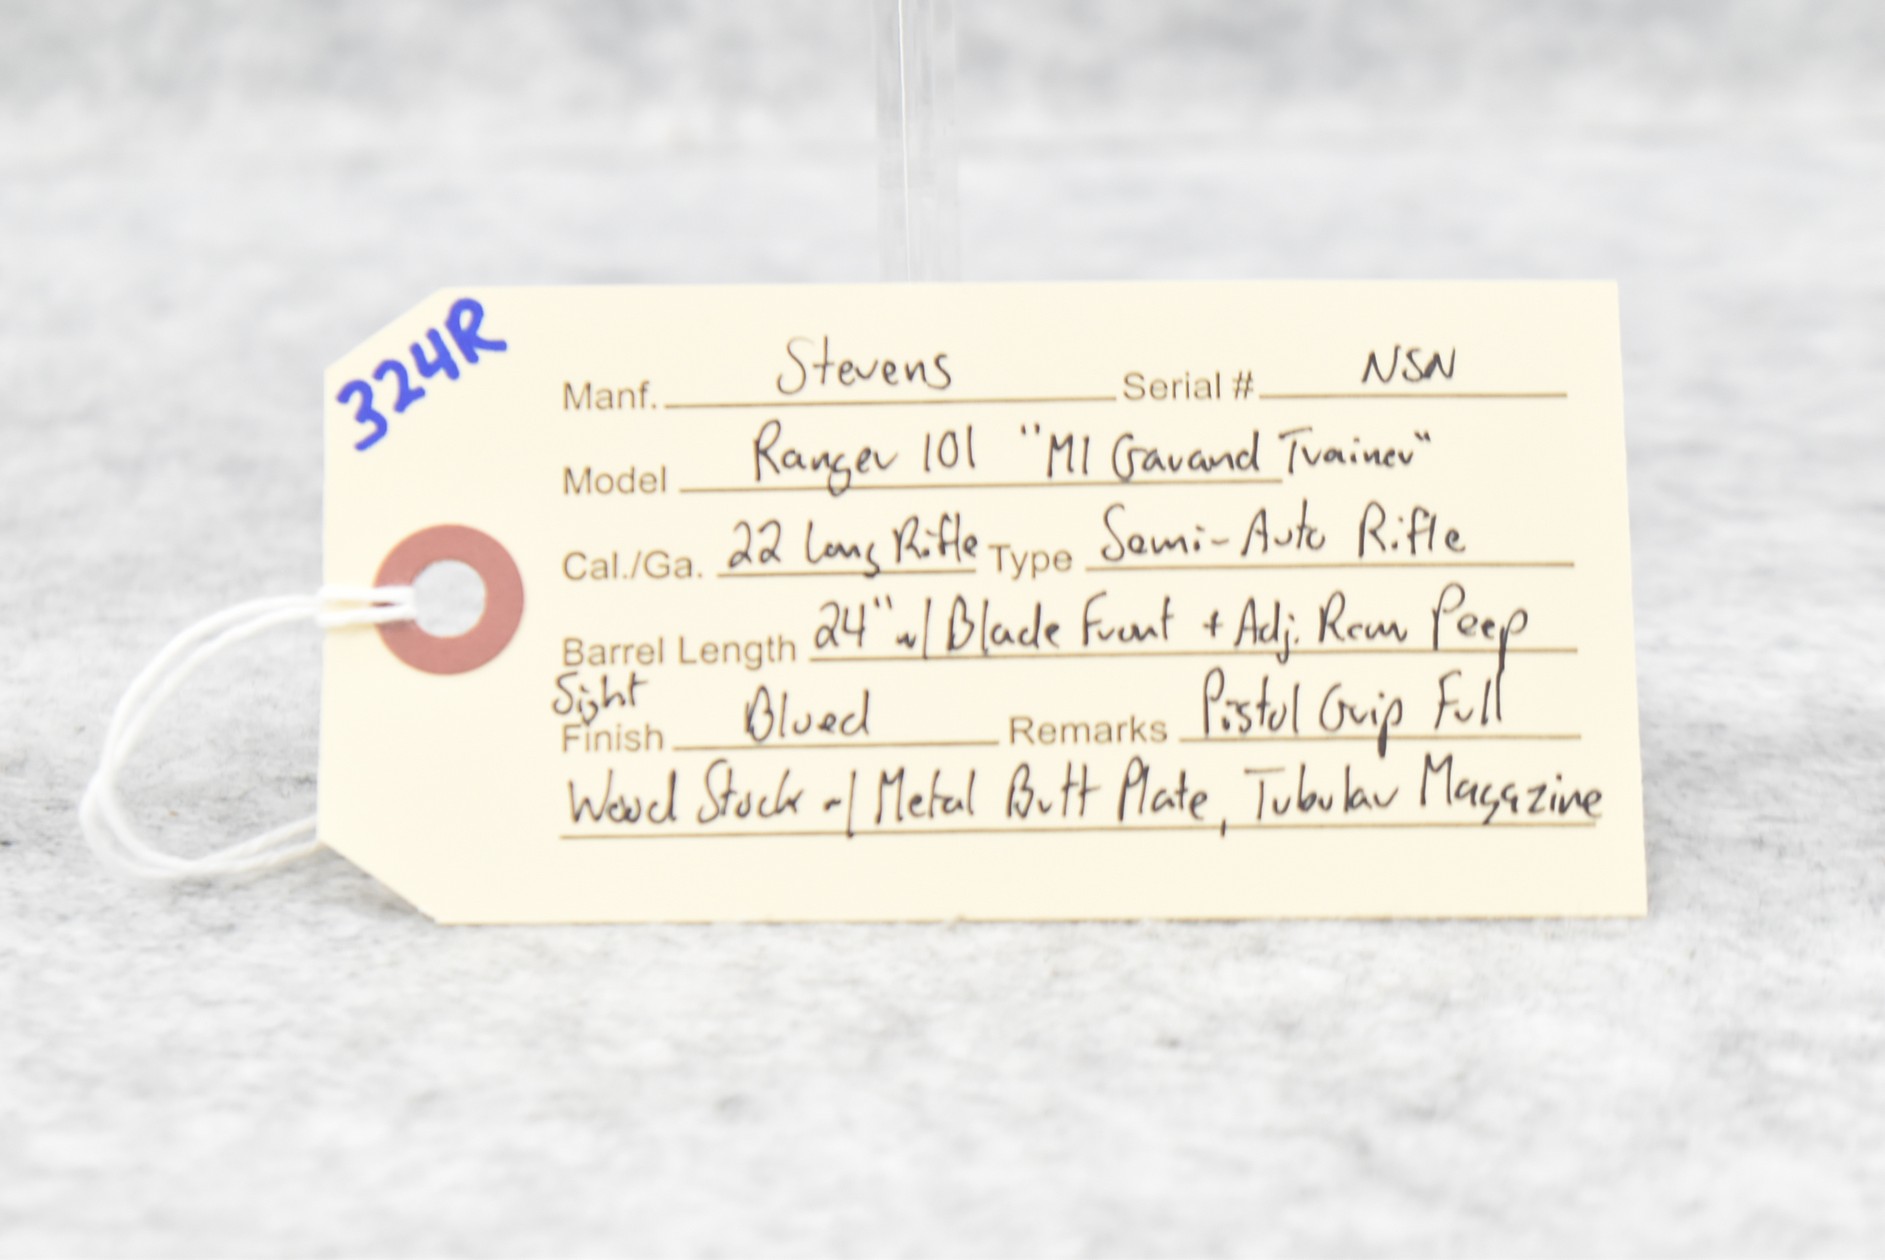 324R
Manf. Stevens Serial # NSN
Model Ranger 101 "M1 Garand Trainer"
Cal./Ga. 22 Long Rifle Type Semi-Auto Rifle
Barrel Length 24" w/ Blade Front + Adj. Rear Peep
Sight
Finish Blued Remarks Pistol Grip Full
Wood Stock w/ Metal Butt Plate, Tubular Magazine